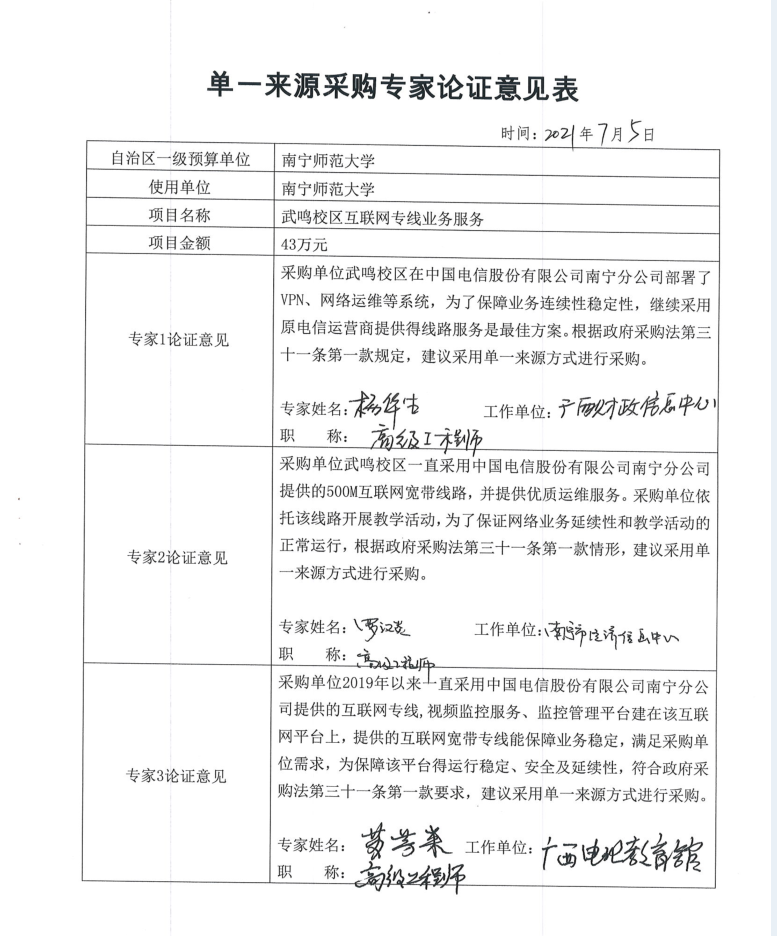 单一来源采购专家论证意见表
时间：2021年7月5日
自治区一级预算单位 南宁师范大学
使用单位 南宁师范大学
项目名称 武鸣校区互联网专线业务服务
项目金额 43万元
专家1论证意见
采购单位武鸣校区在中国电信股份有限公司南宁分公司部署了
VPN、网络运维等系统，为了保障业务连续性稳定性，继续采用
原电信运营商提供得线路服务是最佳方案。根据政府采购法第三
十一条第一款规定，建议采用单一来源方式进行采购。
专家姓名： 工作单位：广西财政信息中心
职 称：高级工程师
专家2论证意见
采购单位武鸣校区一直采用中国电信股份有限公司南宁分公司
提供的500M互联网宽带线路，并提供优质运维服务。采购单位依
托该线路开展教学活动，为了保证网络业务延续性和教学活动的
正常运行，根据政府采购法第三十一条第一款情形，建议采用单
一来源方式进行采购。
专家姓名： 工作单位：南宁市经济信息中心
职 称：高级工程师
专家3论证意见
采购单位2019年以来一直采用中国电信股份有限公司南宁分公
司提供的互联网专线,视频监控服务、监控管理平台建在该互联
网平台上，提供的互联网宽带专线能保障业务稳定，满足采购单
位需求，为保障该平台得运行稳定、安全及延续性，符合政府采
购法第三十一条第一款要求，建议采用单一来源方式进行采购。
专家姓名： 工作单位：广西电化教育馆
职 称：高级工程师